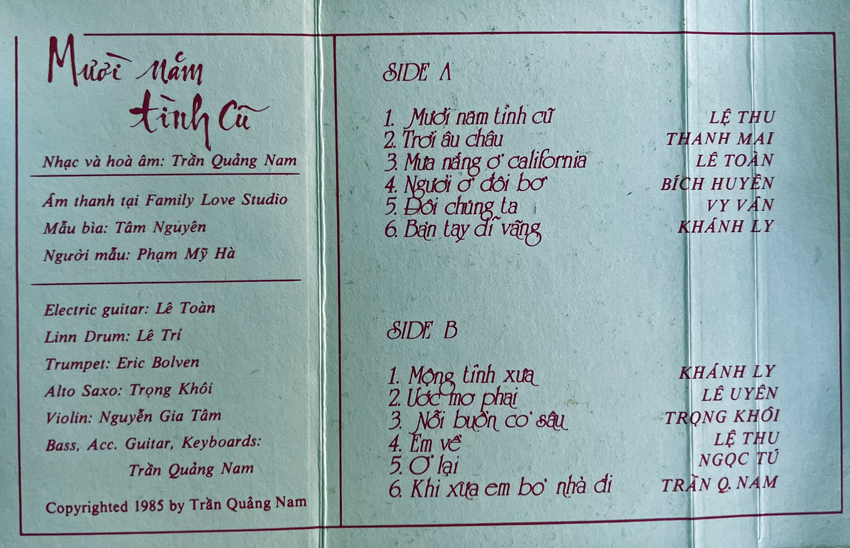 Mười năm
tình cũ
Nhạc và hoà âm: Trần Quảng Nam
Âm thanh tại Family Love Studio
Mẫu bìa: Tâm Nguyên
Người mẫu: Phạm Mỹ Hà
Electric guitar: Lê Toàn
Linn Drum: Lê Trí
Trumpet: Eric Bolven
Alto Saxo: Trọng Khôi
Violin: Nguyễn Gia Tâm
Bass, Acc. Guitar, Keyboards:
Trần Quảng Nam
Copyrighted 1985 by Trần Quảng Nam
SIDE A
1. Mười năm tình cũ LỆ THU
2. Trời âu châu THANH MAI
3. Mưa nắng ở california LÊ TOÀN
4. Người ở đôi bờ BÍCH HUYỀN
5. Đôi chúng ta VY VÂN
6. Bàn tay dĩ vãng KHÁNH LY
SIDE B
1. Mộng tình xưa KHÁNH LY
2. Ước mơ phai LÊ UYÊN
3. Nỗi buồn cỏ sâu TRỌNG KHÔI
4. Em về LỆ THU
5. Ở lại NGỌC TÚ
6. Khi xưa em bỏ nhà đi TRẦN Q. NAM